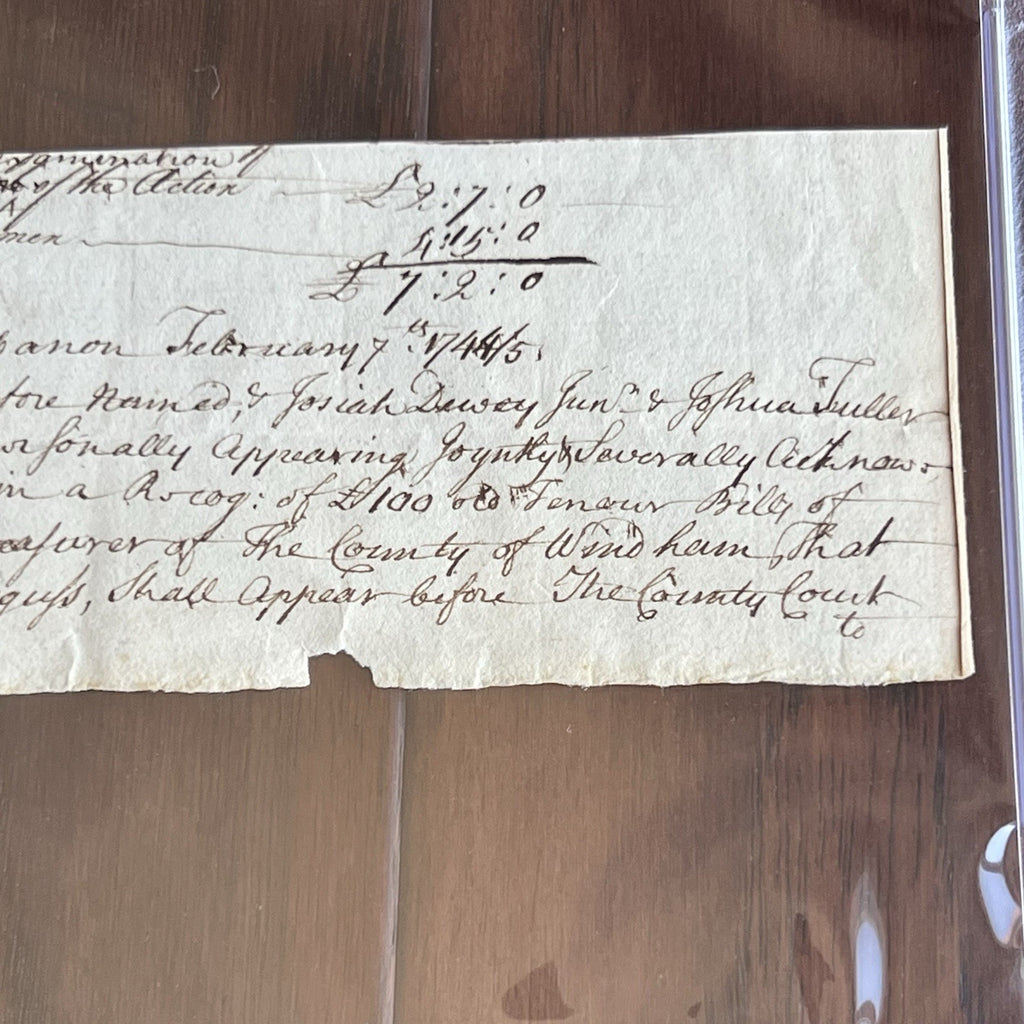 xamination of
of the Action £2:7:0
men 4:15:0
£ 7:2:0
banon February 7th 1744/5.
fore Named, & Josiah Dewey Junr & Joshua Fuller
ersonally Appearing Joyntly & Severally Acknow-
in a Recog: of £100 old Tenour Bills of
easurer of The County of Windham, That
guss, Shall Appear before The County Court
to